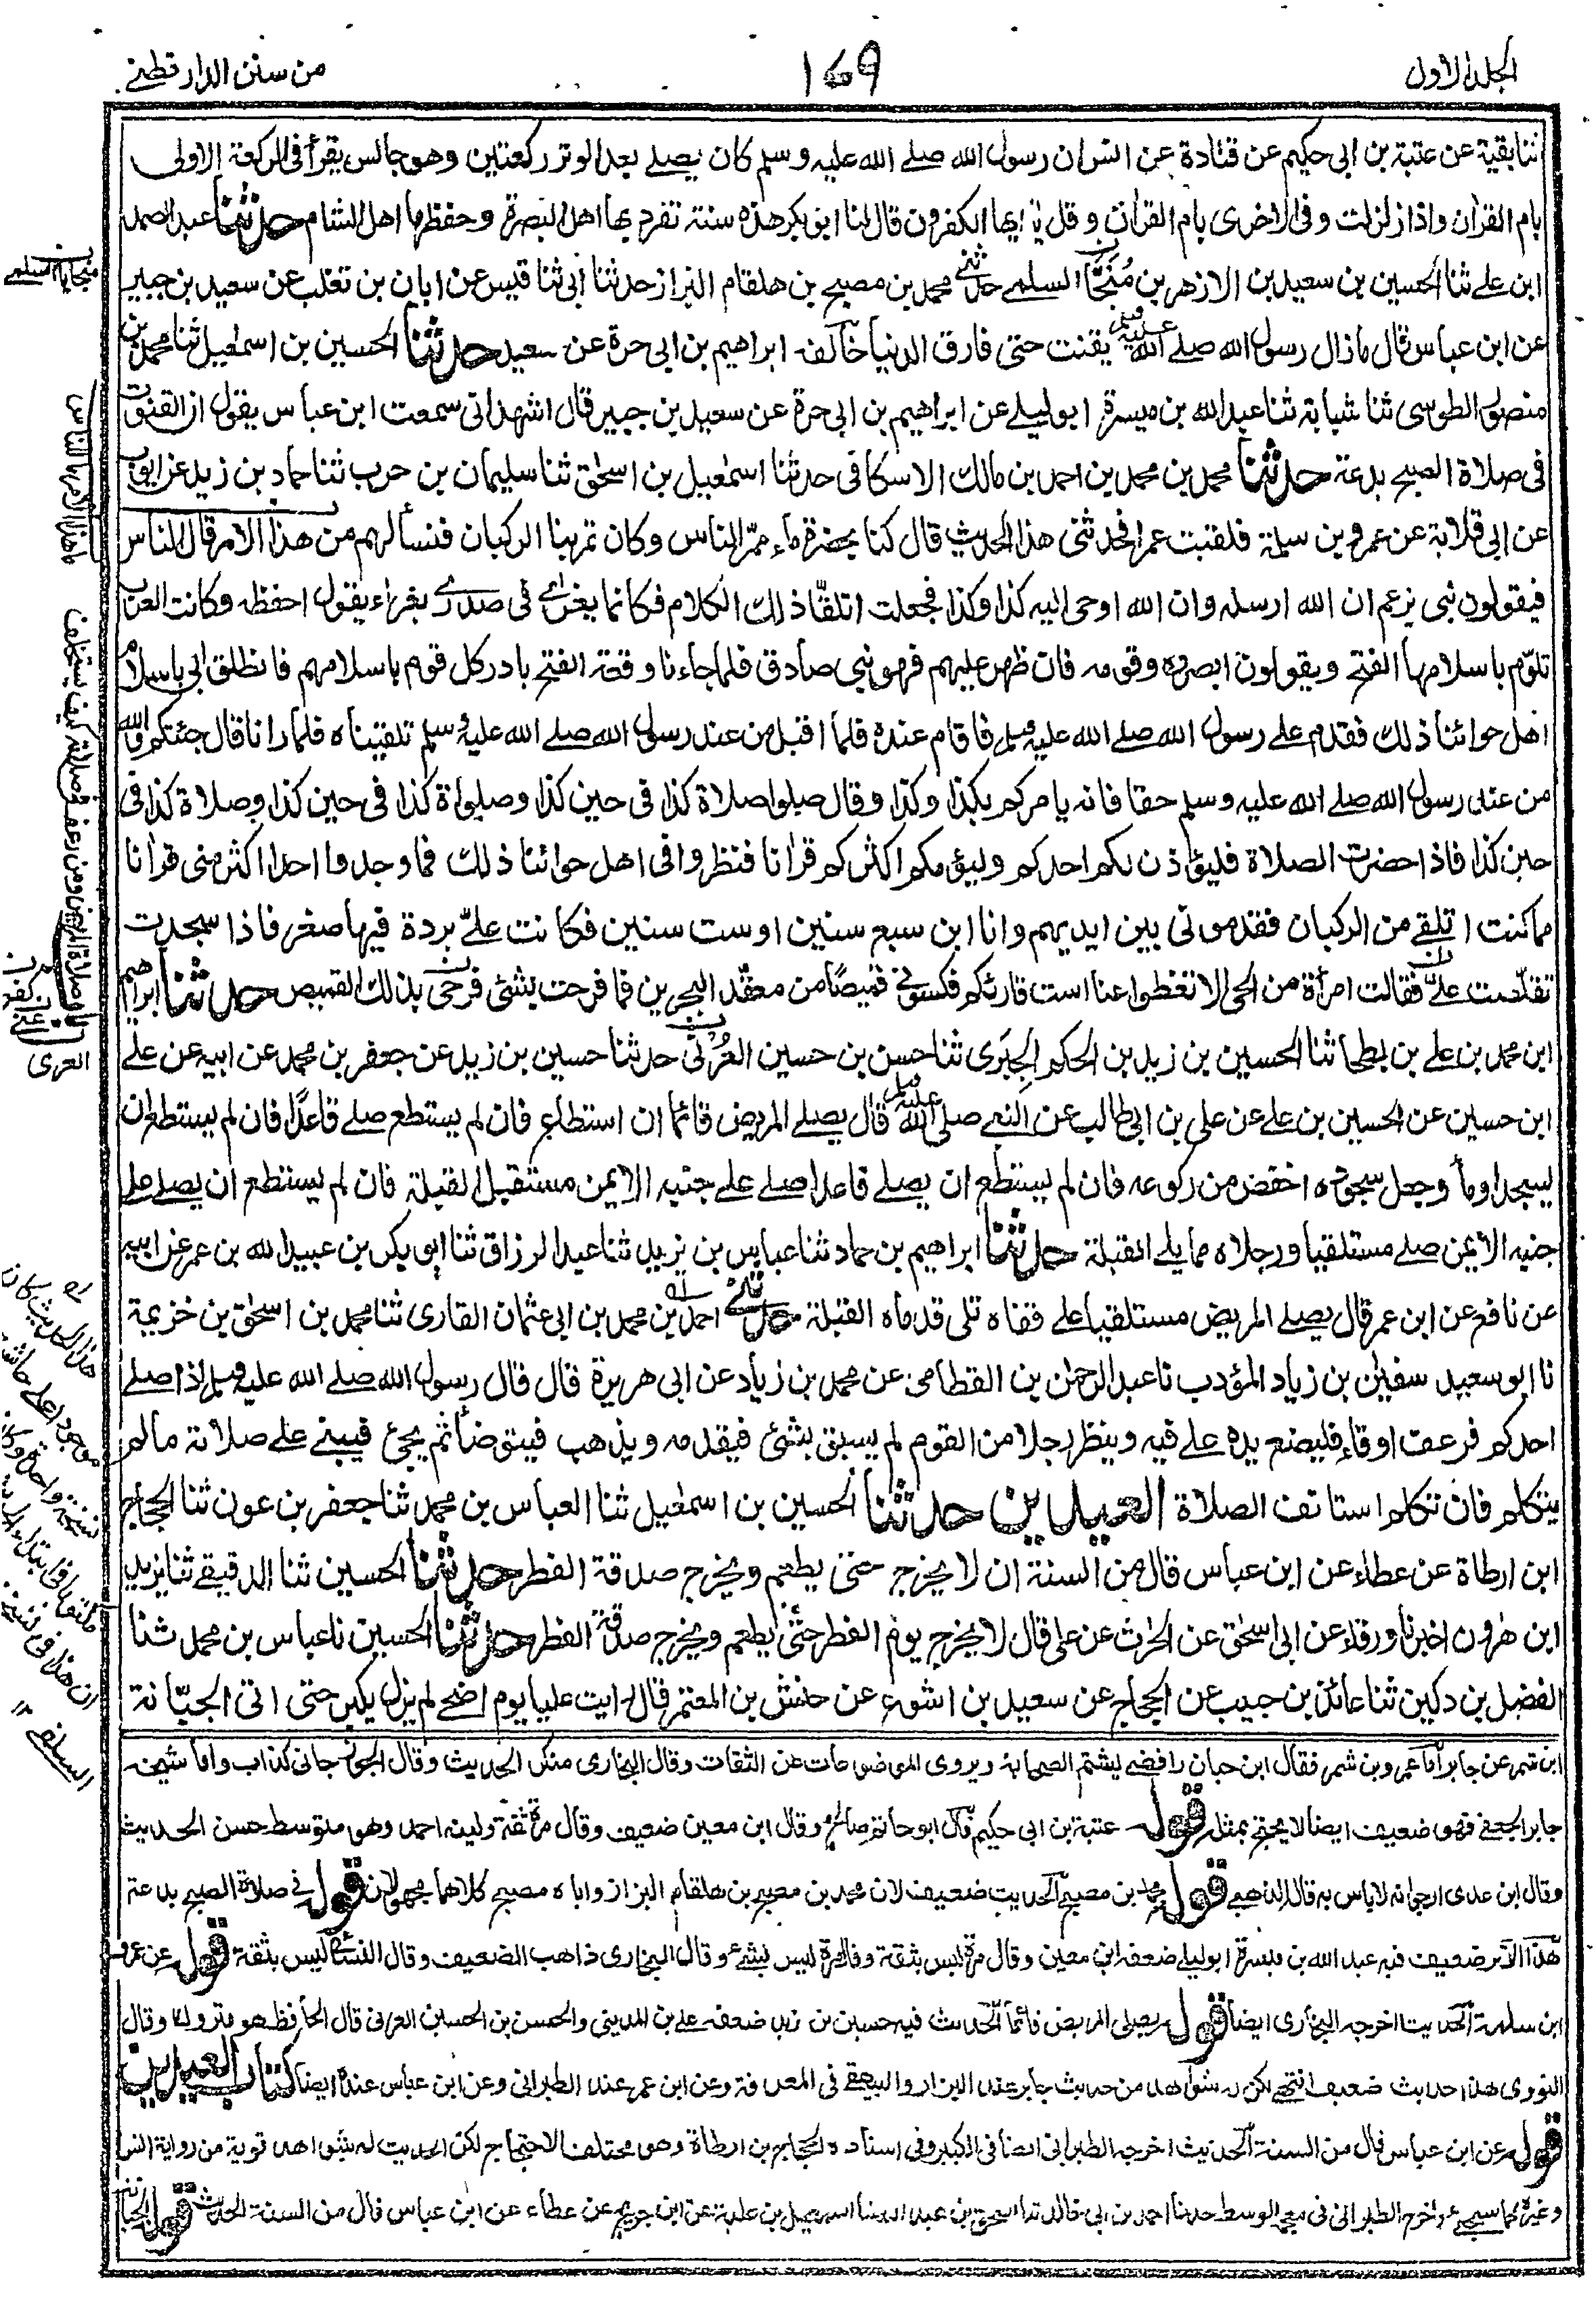 الجلد الاول
١٧٩
من سنن الدارقطنے
ثنا بقية عن عتبة بن ابى حكيم عن قتادة عن انس ان رسول الله صلے الله عليه وسلم كان يصلے بعد الوتر ركعتين وهو جالس يقرأ فى الركعة الاولى
بام القران واذا زلزلت وفى الاخرى بام القران وقل يا ايها الكفرون قال لنا ابو بكر هذه سنة تفرد بها اهل البصرة وحفظها اهل الشام حدثنا عبد الصمد
ابن علے ثنا الحسين بن سعيد بن الازهر بن مُنَجَّا السلمے حدثنے محمد بن مصبح بن هلقام البزاز حدثنا ابى ثنا قيس عن ابان بن تغلب عن سعيد بن جبير
عن ابن عباس قال ما زال رسول الله صلے الله عليه وسلم يقنت حتى فارق الدنيا خالفه ابراهيم بن ابى حرة عن سعيد حدثنا الحسين بن اسمعيل ثنا محمد بن
منصور الطوسى ثنا شبابة ثنا عبد الله بن ميسرة ابو ليلے عن ابراهيم بن ابى حرة عن سعيد بن جبير قال اشهد انى سمعت ابن عباس يقول ان القنوت
فى صلاة الصبح بدعة حدثنا محمد بن محمد بن احمد بن مالك الاسكافى حدثنا اسمعيل بن اسحق ثنا سليمان بن حرب ثنا حماد بن زيد عن ايوب
عن ابى قلابة عن عمرو بن سلمة فلقيت عمرا فحدثنى هذا الحديث قال كنا بحضرة ماء ممرّ الناس وكان تمر بنا الركبان فنسألهم من هذا الامر قال للناس
فيقولون نبى يزعم ان الله ارسله وان الله اوحى اليه كذا وكذا فجعلت اتلقّا ذلك الكلام فكانما يغرى فى صدرى بغراء يقول احفظه وكانت العرب
تلوّم باسلامها الفتح ويقولون ابصروه وقومه فان ظهر عليهم فهو نبى صادق فلما جاءنا وقعة الفتح بادر كل قوم باسلامهم فانطلق ابى باسلام
اهل حوائنا ذلك فقدم على رسول الله صلے الله عليه وسلم فاقام عنده فلما اقبل من عند رسول الله صلے الله عليه وسلم تلقيناه فلما رانا قال جئتكم والله
من عند رسول الله صلے الله عليه وسلم حقا فانه يامركم بكذا وكذا وقال صلوا صلاة كذا فى حين كذا وصلواة كذا فى حين كذا وصلاة كذا فى
حين كذا فاذا حضرت الصلاة فليؤذن لكم احدكم وليؤمكم اكثركم قرانا فنظروا فى اهل حوائنا ذلك فما وجدوا احدا اكثر منى قرانا
مما كنت اتلقے من الركبان فقدمونى بين ايديهم وانا ابن سبع سنين او ست سنين فكانت علىّ بردة فيها صغر فاذا سجدت
تقلّصت علىّ فقالت امرأة من الحى الا تغطوا عنا است قارئكم فكسونى قميصًا من معقّد البحرين فما فرحت بشئ فرحى بذلك القميص حدثنا ابراهيم
ابن محمد بن على بن بطحا ثنا الحسين بن زيد بن الحكم الحِبَرى ثنا حسن بن حسين العُرَنى حدثنا حسين بن زيد عن جعفر بن محمد عن ابيه عن علے
ابن حسين عن الحسين بن علے عن على بن ابى طالب عن النبى صلى الله عليه وسلم قال يصلے المريض قائما ان استطاع فان لم يستطع صلے قاعدًا فان لم يستطع ان
ليسجد اومأ وجعل سجوده اخفض من ركوعه فان لم يستطع ان يصلے قاعدا صلے علے جنبه الايمن مستقبل القبلة فان لم يستطع ان يصلے على
جنبه الايمن صلے مستلقيا ورجلاه مما يلے القبلة حدثنا ابراهيم بن حماد ثنا عباس بن يزيد ثنا عبد الرزاق ثنا ابو بكر بن عبيد الله بن عمر عن ابيه
عن نافع عن ابن عمر قال يصلے المريض مستلقيا على قفاه تلى قدماه القبلة حدثنے احمد بن محمد بن ابى عثمان القارى ثنا محمد بن اسحق بن خزيمة
نا ابو سعيد سفين بن زياد المؤدب نا عبد الرحمن بن القطامى عن محمد بن زياد عن ابى هريرة قال قال رسول الله صلے الله عليه وسلم اذا صلے
احدكم فرعف او قاء فليضع يده علے فيه وينظر رجلا من القوم لم يسبق بشئ فيقدمه ويذهب فيتوضأ ثم يجئ فيبنے علے صلاته ما لم
يتكلم فان تكلم استانف الصلاة العيدين حدثنا الحسين بن اسمعيل ثنا العباس بن محمد ثنا جعفر بن عون ثنا الحجاج
ابن ارطاة عن عطاء عن ابن عباس قال من السنة ان لا يخرج حتى يطعم ويخرج صدقة الفطر حدثنا الحسين ثنا الدقيقے ثنا يزيد
ابن هرون اخبرنا ورقاء عن ابى اسحق عن الحرث عن على قال لا يخرج يوم الفطر حتى يطعم ويخرج صدقة الفطر حدثنا الحسين نا عباس بن محمد ثنا
الفضل بن دكين ثنا عائذ بن حبيب عن الحجاج عن سعيد بن اشوع عن حنش بن المعتمر قال رايت عليا يوم اضحے لم يزل يكبر حتى اتى الجبّانة
ابن شمر عن جابر أما عمرو بن شمر فقال ابن حبان رافضے يشتم الصحابة ويروى الموضوعات عن الثقات وقال البخارى منكر الحديث وقال الجوزجانى كذاب واما شيخه
جابر الجعفے فهو ضعيف ايضا لا يحتج بمثله قوله عتبة بن ابى حكيم قال ابو حاتم صالح وقال ابن معين ضعيف وقال مرة ثقة ولينه احمد وهو متوسط حسن الحديث
وقال ابن عدى ارجو انه لا باس به قاله الذهبے قوله محمد بن مصبح الحديث ضعيف لان محمد بن مصبح بن هلقام البزاز واباه مصبح كلاهما مجهولان قوله فے صلاة الصبح بدعة
هذا الاثر ضعيف فيه عبد الله بن ميسرة ابو ليلے ضعفه ابن معين وقال مرة ليس بثقة وقال مرة ليس بشئ وقال البخارى ذاهب الضعيف وقال النسائى ليس بثقة قوله عن عمرو
ابن سلمة الحديث اخرجه البخارى ايضا قوله يصلى المريض قائما الحديث فيه حسين بن زيد ضعفه على بن المدينى والحسن بن الحسين العرنى قال الحافظ هو متروك وقال
النووى هذا حديث ضعيف انتهے لكن له شواهد من حديث جابر عند البزار والبيهقے فى المعرفة وعن ابن عمر عند الطبرانى وعن ابن عباس عنده ايضا كتاب العيدين
قوله عن ابن عباس قال من السنة الحديث اخرجه الطبرانى ايضا فى الكبير وفى اسناده الحجاج بن ارطاة وهو مختلف الاحتجاج لكن الحديث له شواهد قوية من رواية انس
وغيره كما سيجئ واخرج الطبرانى فى معجمه الوسط حدثنا احمد بن ابى خالد ثنا اسحق بن عبد الله ثنا اسمعيل بن علية عن ابن جريج عن عطاء عن ابن عباس قال من السنة الحديث قوله الجبانة
منجاب السلمے
ما هذا الامر ما الناس
باب صلاة المريض ومن رعف فى صلاته كيف يستخلف
العرى
هذا الحديث كان
موجودا على حاشية
نسخة واحدة وكان
ملحقا فى ابتداء
ان هذا فى نسخة
السلفے ١٢